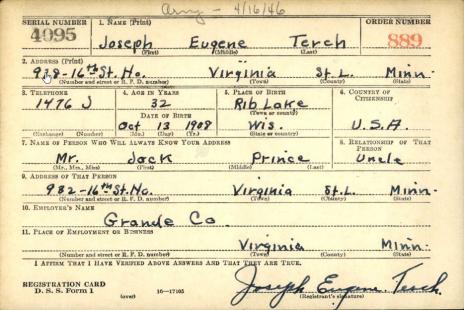 Army - 4/16/46
SERIAL NUMBER 1. NAME (Print) ORDER NUMBER
4095 Joseph Eugene Terch 889
(First) (Middle) (Last)
2. ADDRESS (Print)
938-16th St. No. Virginia St. L. Minn.
(Number and street or R. F. D. number) (Town) (County) (State)
3. TELEPHONE 4. AGE IN YEARS 5. PLACE OF BIRTH 6. COUNTRY OF CITIZENSHIP
1476 J 32 Rib Lake
(Town or county)
DATE OF BIRTH
Oct 13 1908 Wis. U.S.A.
(Exchange) (Number) (Mo.) (Day) (Yr.) (State or country)
7. NAME OF PERSON WHO WILL ALWAYS KNOW YOUR ADDRESS 8. RELATIONSHIP OF THAT PERSON
Mr. Jack Prince Uncle
(Mr., Mrs., Miss) (First) (Middle) (Last)
9. ADDRESS OF THAT PERSON
932-16th St. No. Virginia St. L. Minn.
(Number and street or R. F. D. number) (Town) (County) (State)
10. EMPLOYER'S NAME
Grande Co.
11. PLACE OF EMPLOYMENT OR BUSINESS
Virginia Minn.
(Number and street or R. F. D. number) (Town) (County) (State)
I AFFIRM THAT I HAVE VERIFIED ABOVE ANSWERS AND THAT THEY ARE TRUE.
REGISTRATION CARD
D. S. S. Form 1 (over) 16-17105 Joseph Eugene Terch
(Registrant's signature)